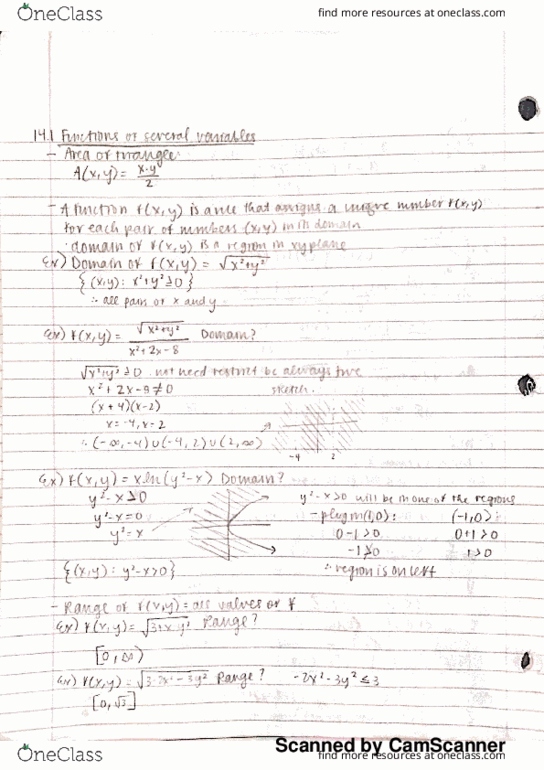 OneClass
find more resources at oneclass.com
14.1 Functions of several variables
- Area of triangle:
A(x,y) = x·y/2
- A function f(x,y) is a rule that assigns a unique number f(x,y)
for each pair of numbers (x,y) in its domain
· domain of f(x,y) is a region in xy plane
Ex) Domain of f(x,y) = √x²+y²
{(x,y): x²+y² ≥ 0}
∴ all pairs of x and y
Ex) f(x,y) = √x²+y² / x²+2x-8 Domain?
√x²+y² ≥ 0 not need restrict bc always true
x²+2x-8≠0 sketch:
(x+4)(x-2)
x=-4, x=2
∴ (-∞,-4)∪(-4,2)∪(2,∞)
-4 2
Ex) f(x,y) = x ln(y²-x) Domain?
y²-x>0 y²-x>0 will be in one of the regions
y²-x=0 - plug in (1,0): (-1,0):
y²=x 0-1>0 0+1>0
-1≯0 1>0
{(x,y): y²-x>0} ∴ region is on left
- Range of f(x,y) = all values of f
Ex) f(x,y) = Range?
[0,∞)
Ex) f(x,y) = √3-2x²-3y² Range? -2x²-3y² ≤ 3
[0,√3]
Scanned by CamScanner
OneClass
find more resources at oneclass.com